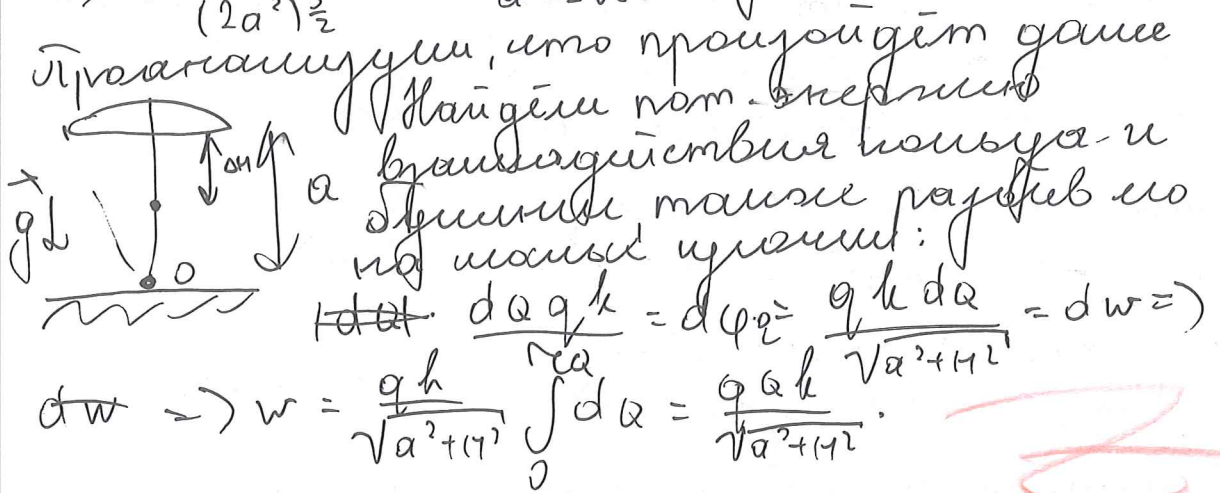 (2a²)^{3/2}
Проанализируем, что произойдёт далее
Найдём пот. энергию
взаимодействия кольца и
бусинки, также разбив его
на малые кусочки:
ΔH a g⃗ O
dQqk = dφq = qkdQ / √(a²+H²) = dw =>
dw => w = qk / √(a²+H²) ∫₀^Q dQ = qQk / √(a²+H²).